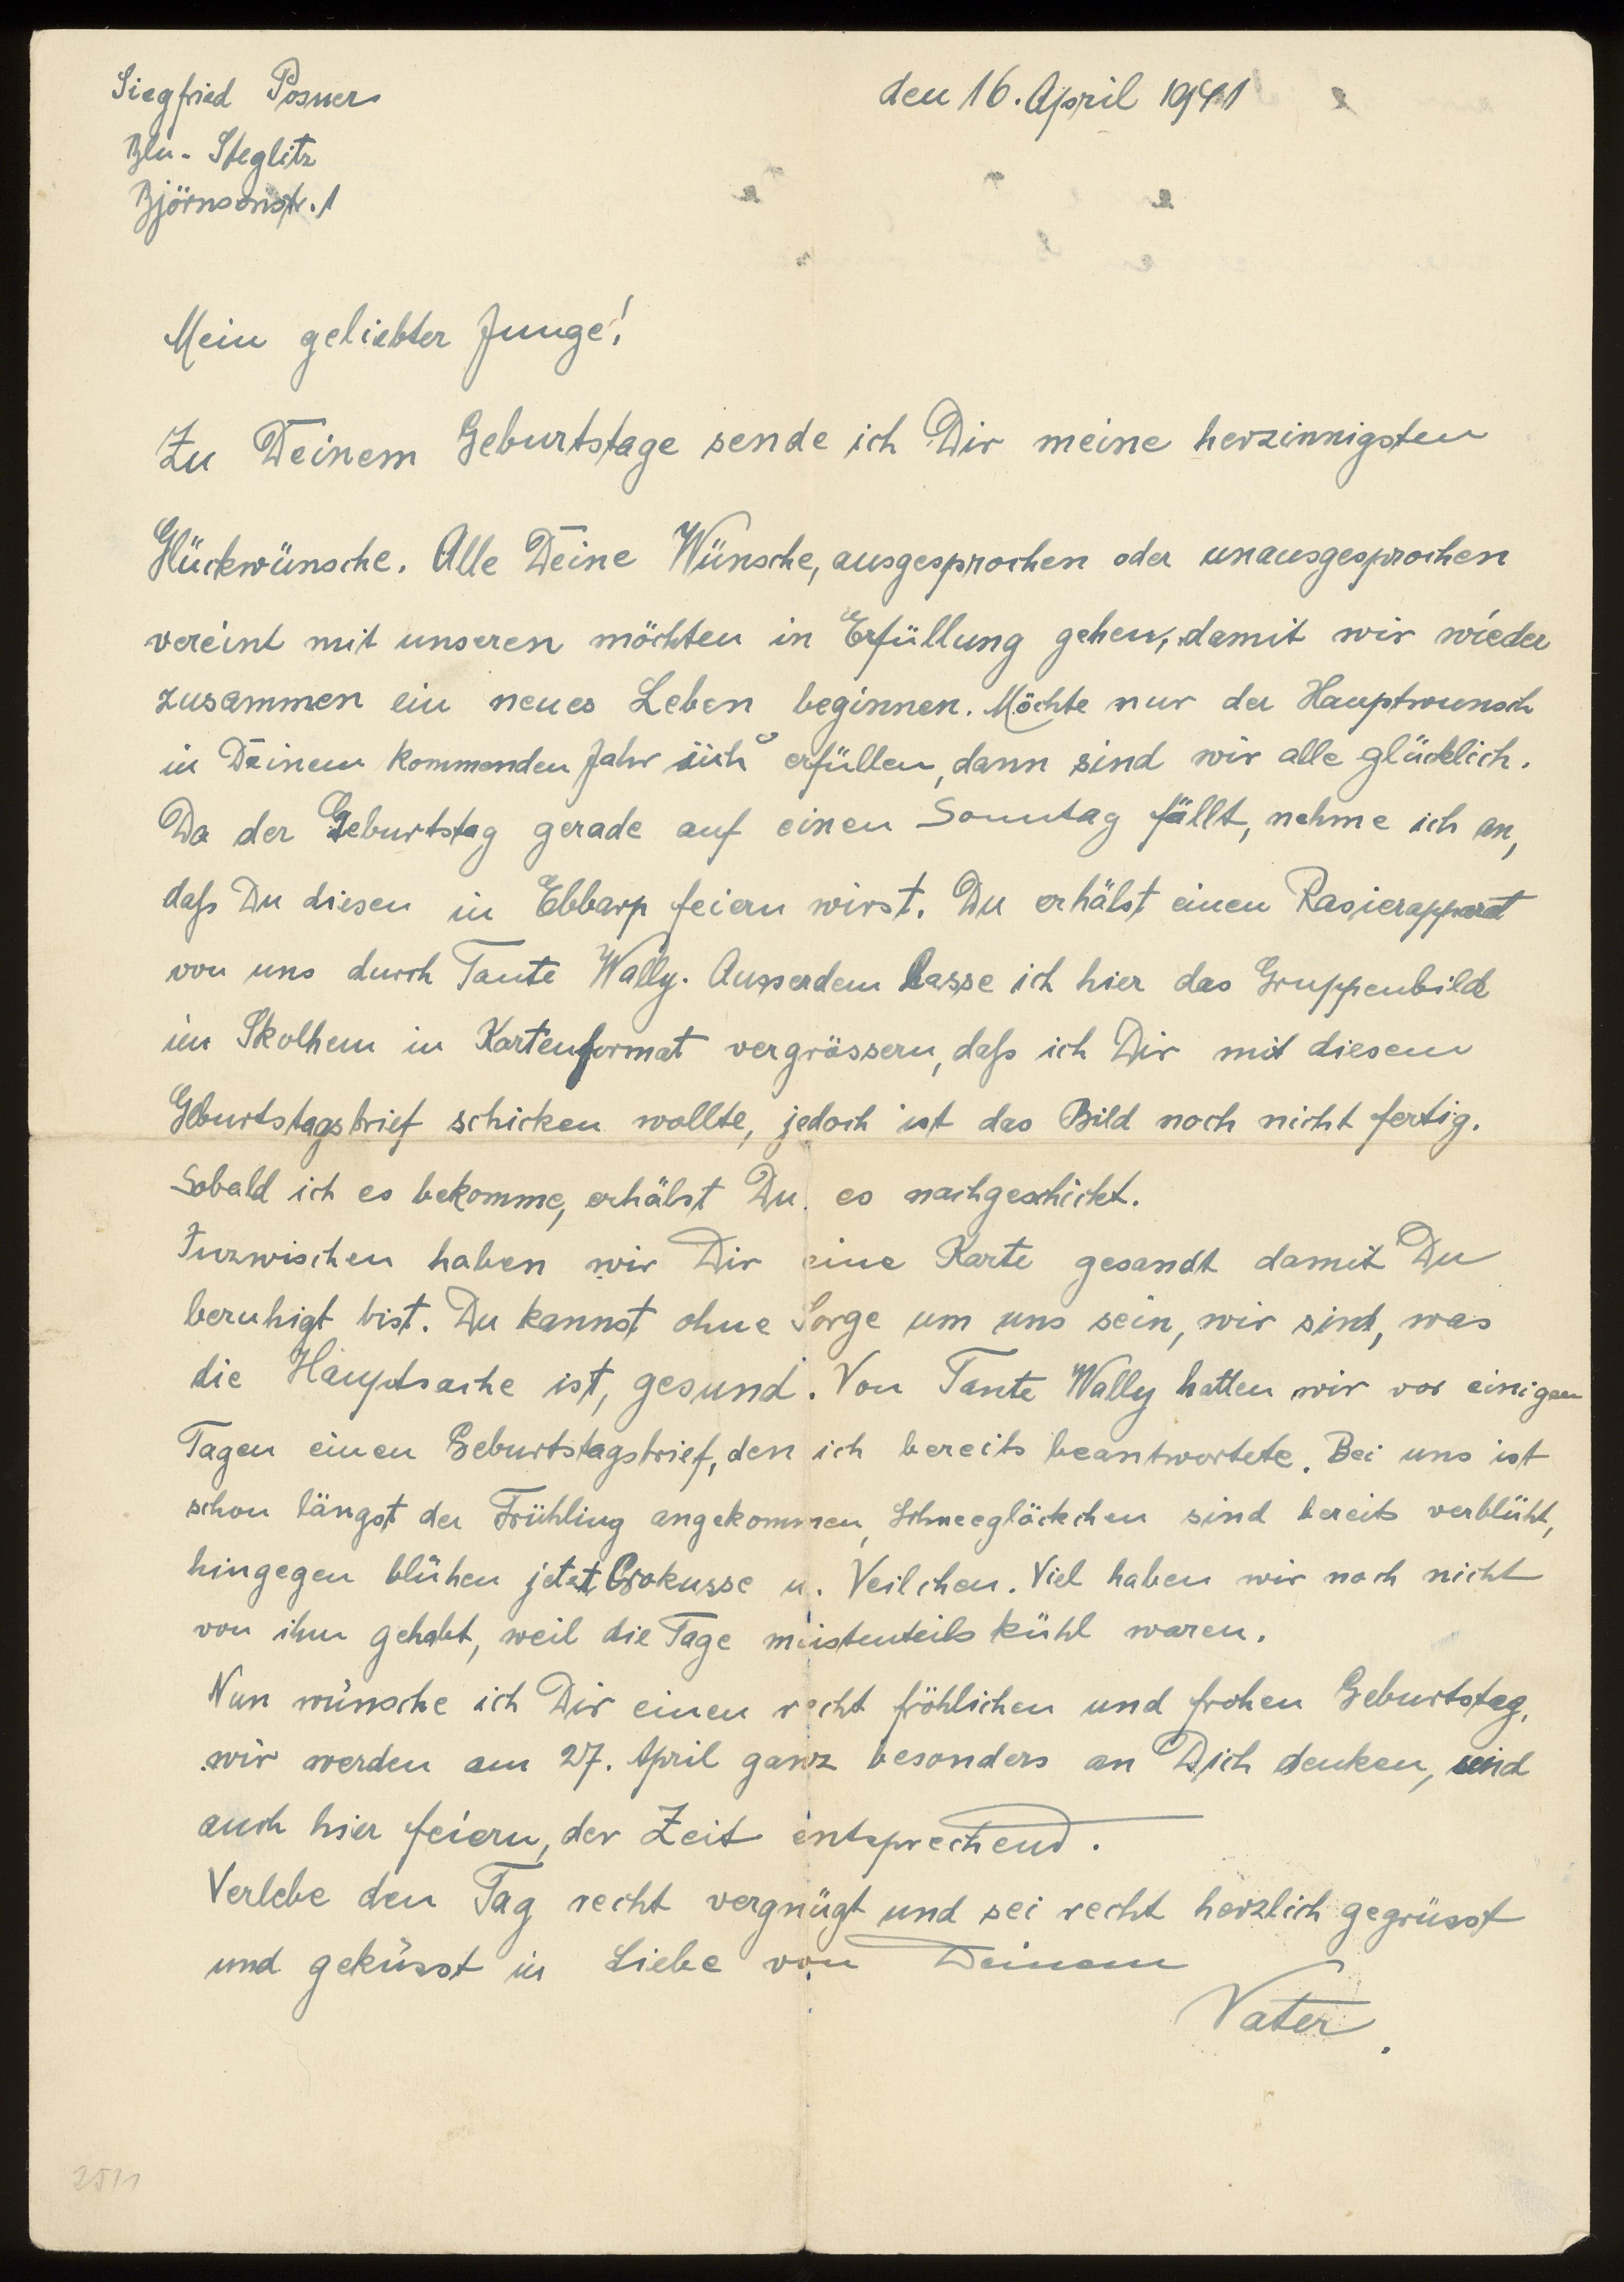 Siegfried Posner
den 16. April 1941
Bln.- Steglitz
Björnsonstr. 1
Mein geliebter Junge!
Zu Deinem Geburtstage sende ich Dir meine herzinnigsten
Glückwünsche. Alle Deine Wünsche, ausgesprochen oder unausgesprochen
vereint mit unseren möchten in Erfüllung gehen, damit wir wieder
zusammen ein neues Leben beginnen. Möchte nur der Hauptwunsch
in Deinem kommenden Jahr sich erfüllen, dann sind wir alle glücklich.
Da der Geburtstag gerade auf einen Sonntag fällt, nehme ich an,
daß Du diesen in Ebbarp feiern wirst. Du erhälst einen Rasierapparat
von uns durch Tante Wally. Ausserdem lasse ich hier das Gruppenbild
im Skolhem in Kartenformat vergrössern, daß ich Dir mit diesem
Geburtstagsbrief schicken wollte, jedoch ist das Bild noch nicht fertig.
Sobald ich es bekomme, erhälst Du es nachgeschickt.
Inzwischen haben wir Dir eine Karte gesandt damit Du
beruhigt bist. Du kannst ohne Sorge um uns sein, wir sind, was
die Hauptsache ist, gesund. Von Tante Wally hatten wir vor einigen
Tagen einen Geburtstagsbrief, den ich bereits beantwortete. Bei uns ist
schon längst der Frühling angekommen, Schneeglöckchen sind bereits verblüht,
hingegen blühen jetzt Crokusse u. Veilchen. Viel haben wir noch nicht
von ihm gehabt, weil die Tage meistenteils kühl waren.
Nun wünsche ich Dir einen recht fröhlichen und frohen Geburtstag,
wir werden am 27. April ganz besonders an Dich denken, und
auch hier feiern, der Zeit entsprechend.
Verlebe den Tag recht vergnügt und sei recht herzlich gegrüsst
und geküsst in Liebe von Deinem
Vater.
2511